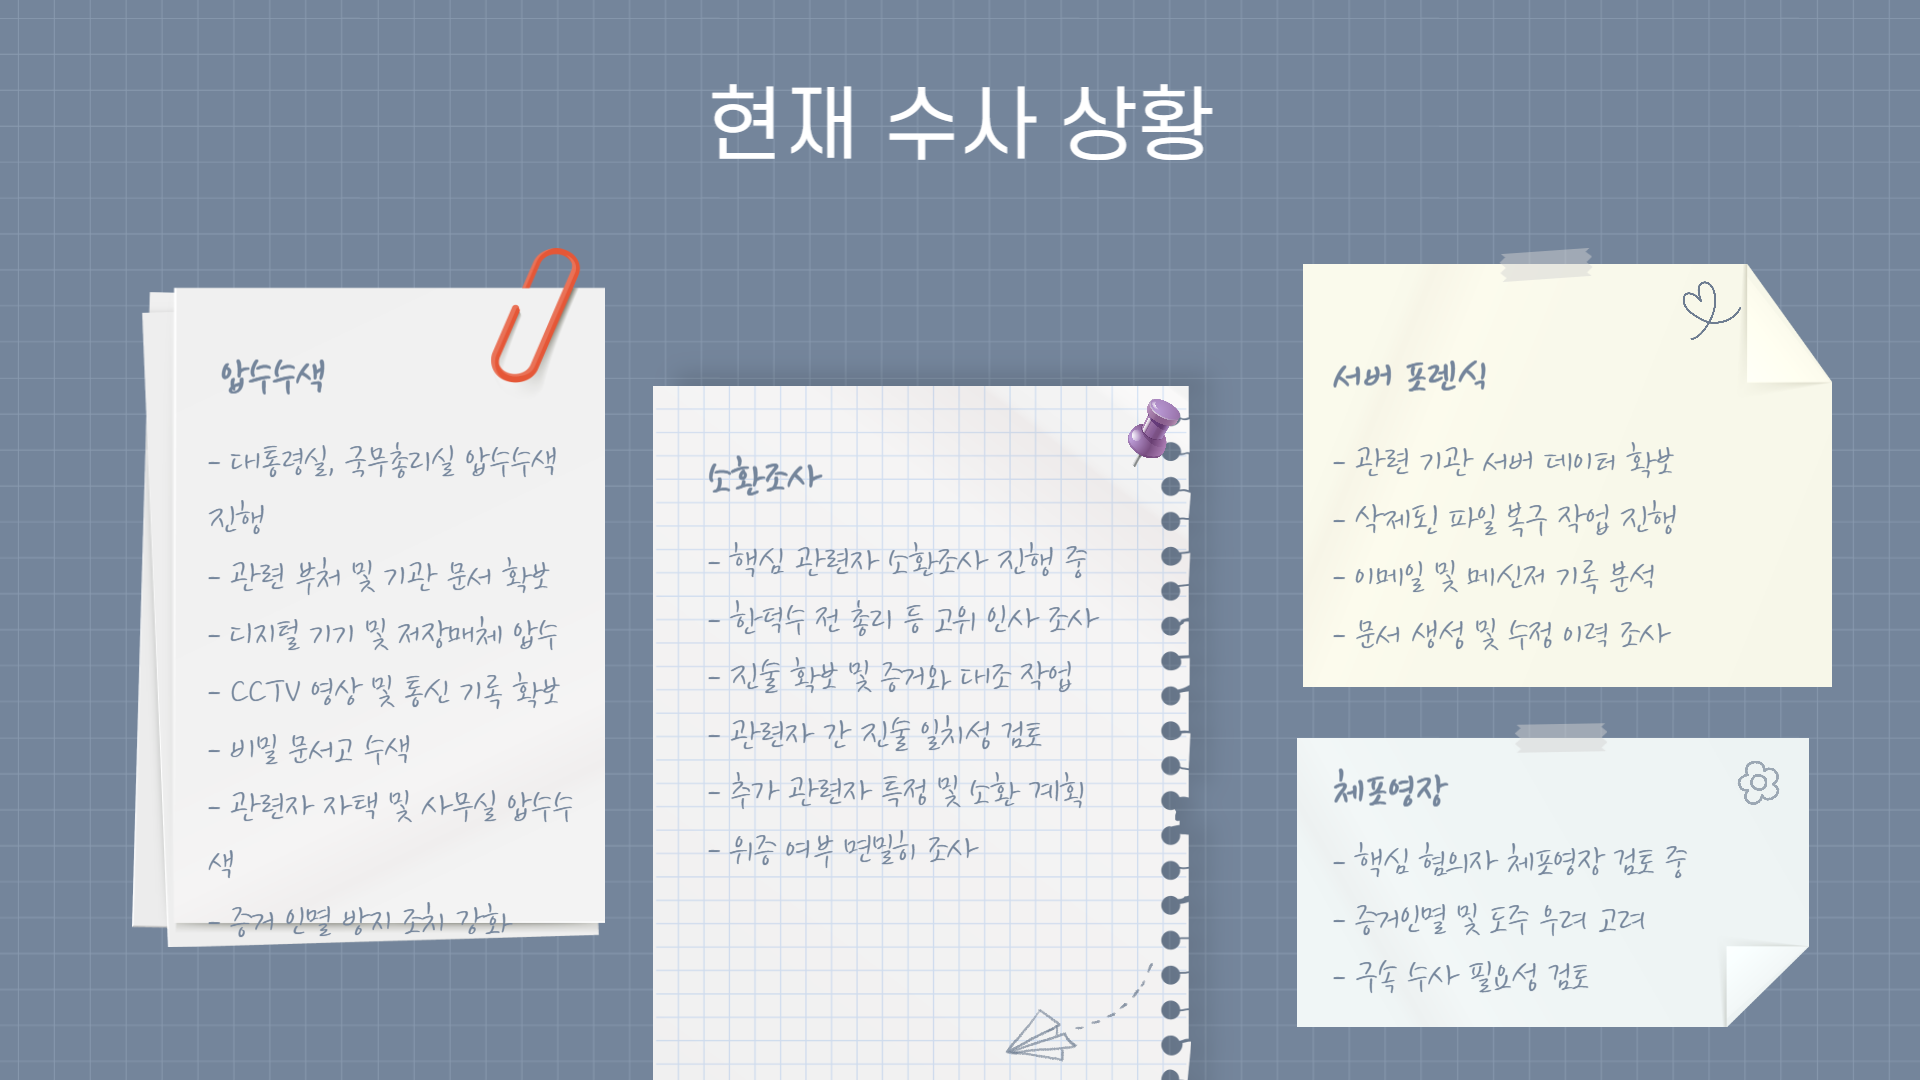 현재 수사 상황
압수수색
- 대통령실, 국무총리실 압수수색
진행
- 관련 부처 및 기관 문서 확보
- 디지털 기기 및 저장매체 압수
- CCTV 영상 및 통신 기록 확보
- 비밀 문서고 수색
- 관련자 자택 및 사무실 압수수
색
- 증거 인멸 방지 조치 강화
소환조사
- 핵심 관련자 소환조사 진행 중
- 한덕수 전 총리 등 고위 인사 조사
- 진술 확보 및 증거와 대조 작업
- 관련자 간 진술 일치성 검토
- 추가 관련자 특정 및 소환 계획
- 위증 여부 면밀히 조사
서버 포렌식
- 관련 기관 서버 데이터 확보
- 삭제된 파일 복구 작업 진행
- 이메일 및 메신저 기록 분석
- 문서 생성 및 수정 이력 조사
체포영장
- 핵심 혐의자 체포영장 검토 중
- 증거인멸 및 도주 우려 고려
- 구속 수사 필요성 검토